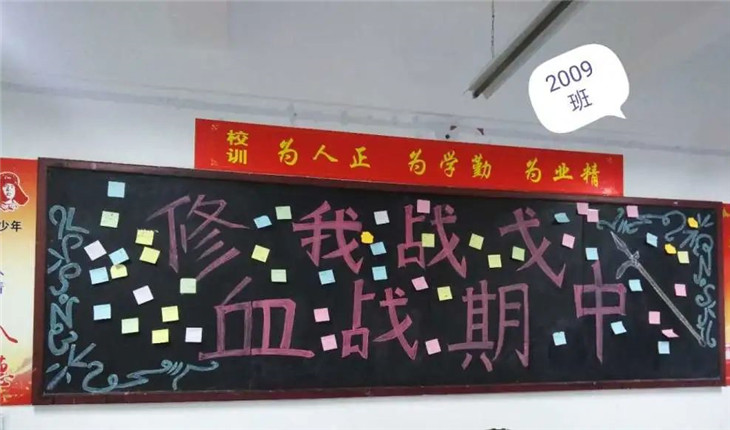 2009
班
校训
为人正 为学勤 为业精
修我战戈
血战期中
少年